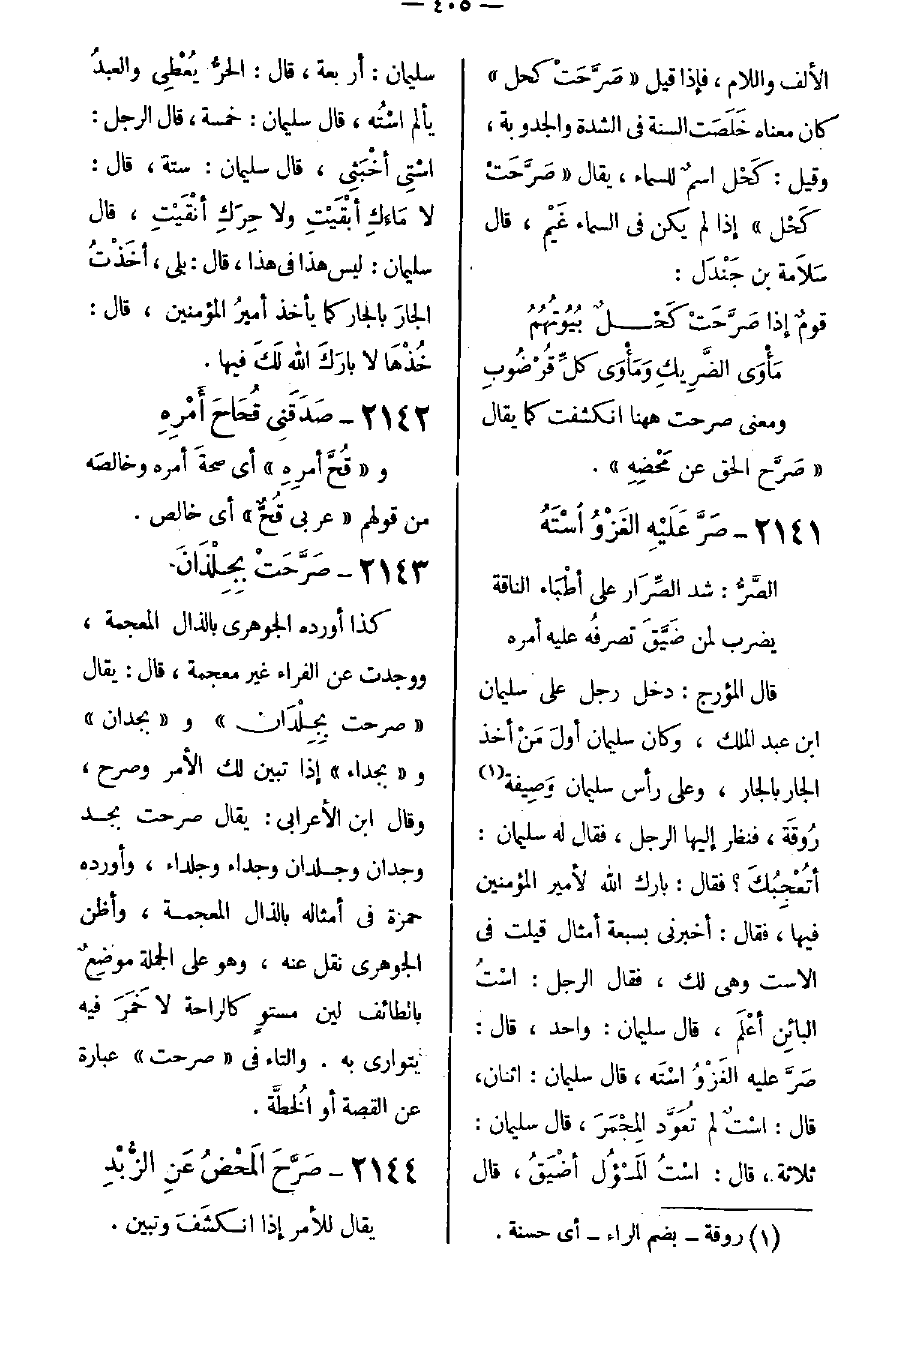 — ٤٠٥ —
الألف واللام ، فإذا قيل « صَرَّحَتْ كحل »
كان معناه خَلَصَت السنة فى الشدة والجدوبة ،
وقيل : كَحْل اسمٌ للسماء ، يقال « صَرَّحَتْ
كَحْل » إذا لم يكن فى السماء غَيْم ، قال
سَلاَمة بن جَنْدَل :
قومٌ إذا صَرَّحَتْ كَحْــلٌ بُيُوتُهُمُ
مَأْوَى الضَّرِيكِ وَمَأْوَى كلِّ قُرْضُوبِ
ومعنى صرحت ههنا انكشفت كما يقال
« صَرَّح الحق عن مَحْضِهِ » .
٢١٤١ – صَرَّ عَلَيْهِ الغَزْوُ اُسْتَهُ
الصَّرُّ : شد الصِّرَار على أطْبَاء الناقة
يضرب لمن ضَيَّقَ تصرفُه عليه أمره
قال المؤرج : دخل رجل على سليمان
ابن عبد الملك ، وكان سليمان أولَ مَنْ أخذ
الجار بالجار ، وعلى رأس سليمان وَصِيفة (١)
رُوقَة ، فنظر إليها الرجل ، فقال له سليمان :
أتُعْجِبُكَ ؟ فقال : بارك الله لأمير المؤمنين
فيها ، فقال : أخبرنى بسبعة أمثال قيلت فى
الاست وهى لك ، فقال الرجل : اسْتُ
البائِنِ أعْلَم ، قال سليمان : واحد ، قال :
صَرَّ عليه الغَزْوُ اسْتَه ، قال سليمان : اثنان ،
قال : اسْتٌ لم تُعَوَّد المِجْمَرَ ، قال سليمان :
ثلاثة ، قال : اسْتُ المَسْؤُل أضْيَقُ ، قال
(١) روقة – بضم الراء – أى حسنة .
سليمان : أربعة ، قال : الحرُّ يُعْطِى والعبدُ
يألم اسْتُه ، قال سليمان : خمسة ، قال الرجل :
اسْتِى أخْبَثِى ، قال سليمان : ستة ، قال :
لا مَاءَكِ أبْقَيْتِ ولا حِرَكِ أنْقَيْتِ ، قال
سليمان : ليس هذا فى هذا ، قال : بلى ، أخَذْتُ
الجارَ بالجار كما يأخذ أميرُ المؤمنين ، قال :
خُذْهَا لا بارَكَ الله لَكَ فيها .
٢١٤٢ – صَدَقَنِى قُحَاحَ أَمْرِهِ
و « قُحَّ أمرِهِ » أى صحةَ أمره وخالصَه
من قولهم « عربى قُحٌّ » أى خالص .
٢١٤٣ – صَرَّحَتْ بِجِلْذَانَ
كذا أورده الجوهرى بالذال المعجمة ،
ووجدت عن الفراء غير معجمة ، قال : يقال
« صرحت بِجِلْدَان » و « بجدان »
و « بجداء » إذا تبين لك الأمر وصرح ،
وقال ابن الأعرابى : يقال صرحت بجد
وجدان وجلدان وجداء وجلداء ، وأورده
حمزة فى أمثاله بالذال المعجمة ، وأظن
الجوهرى نقل عنه ، وهو على الجملة موضِعٌ
بالطائف لين مستوٍ كالراحة لا خَمَرَ فيه
يتوارى به . والتاء فى « صرحت » عبارة
عن القصة أو الخطَّة .
٢١٤٤ – صَرَّحَ المَحْضُ عَنِ الزُّبْدِ
يقال للأمر إذا انكشَفَ وتبين .